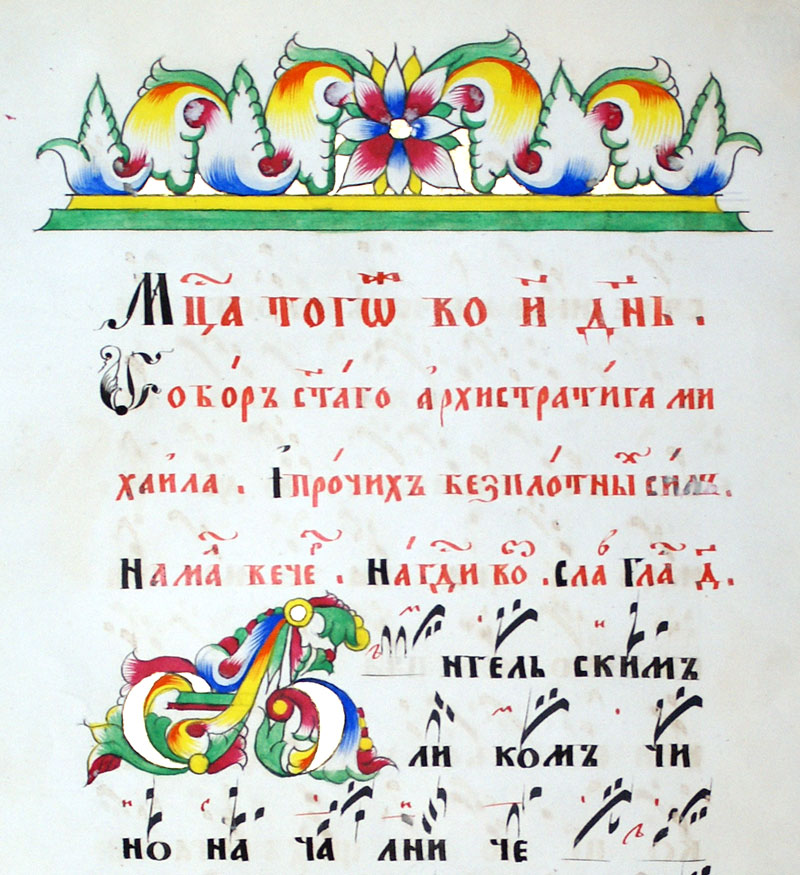 Мцⷭ҇а тогѡⷤ во и҃ дн҃ь.
Собо́ръ ст҃а́го а҆рхистрати́га ми
хаи́ла. І҆про́чихъ безпло́тныⷯ си́лъ.
Намаⷧ҇ вечеⷬ҇. На́ гдⷭ҇и во . сла гла д҃.
Аг҆гельскимъ
ли комъ чи
но на ча лни че